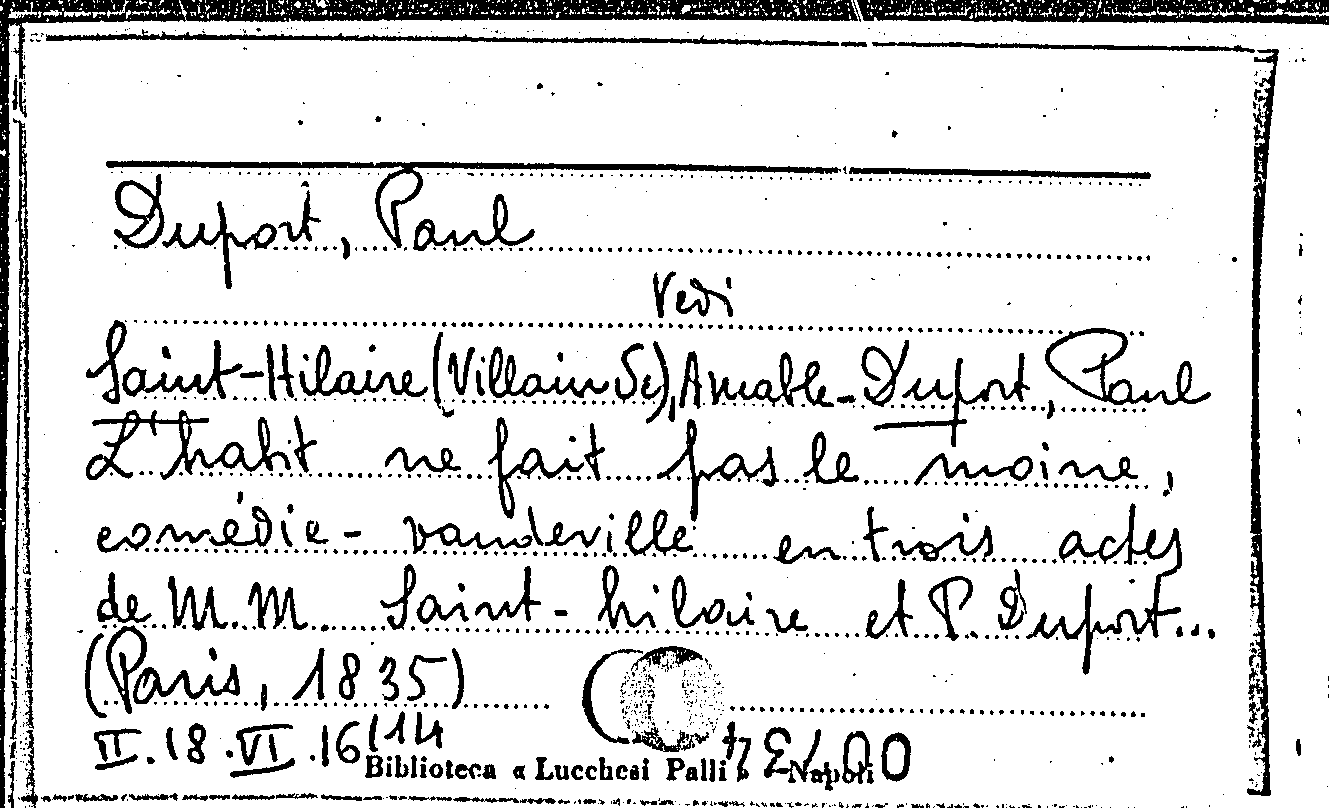 Duport, Paul
Vedi
Saint-Hilaire (Villain De), Amable - Duport, Paul
L'habit ne fait pas le moine,
comédie - vaudeville en trois actes
de M.M. Saint-hilaire et P. Duport...
(Paris, 1835)
II.18.VI.16/14
Biblioteca « Lucchesi Palli » - Napoli